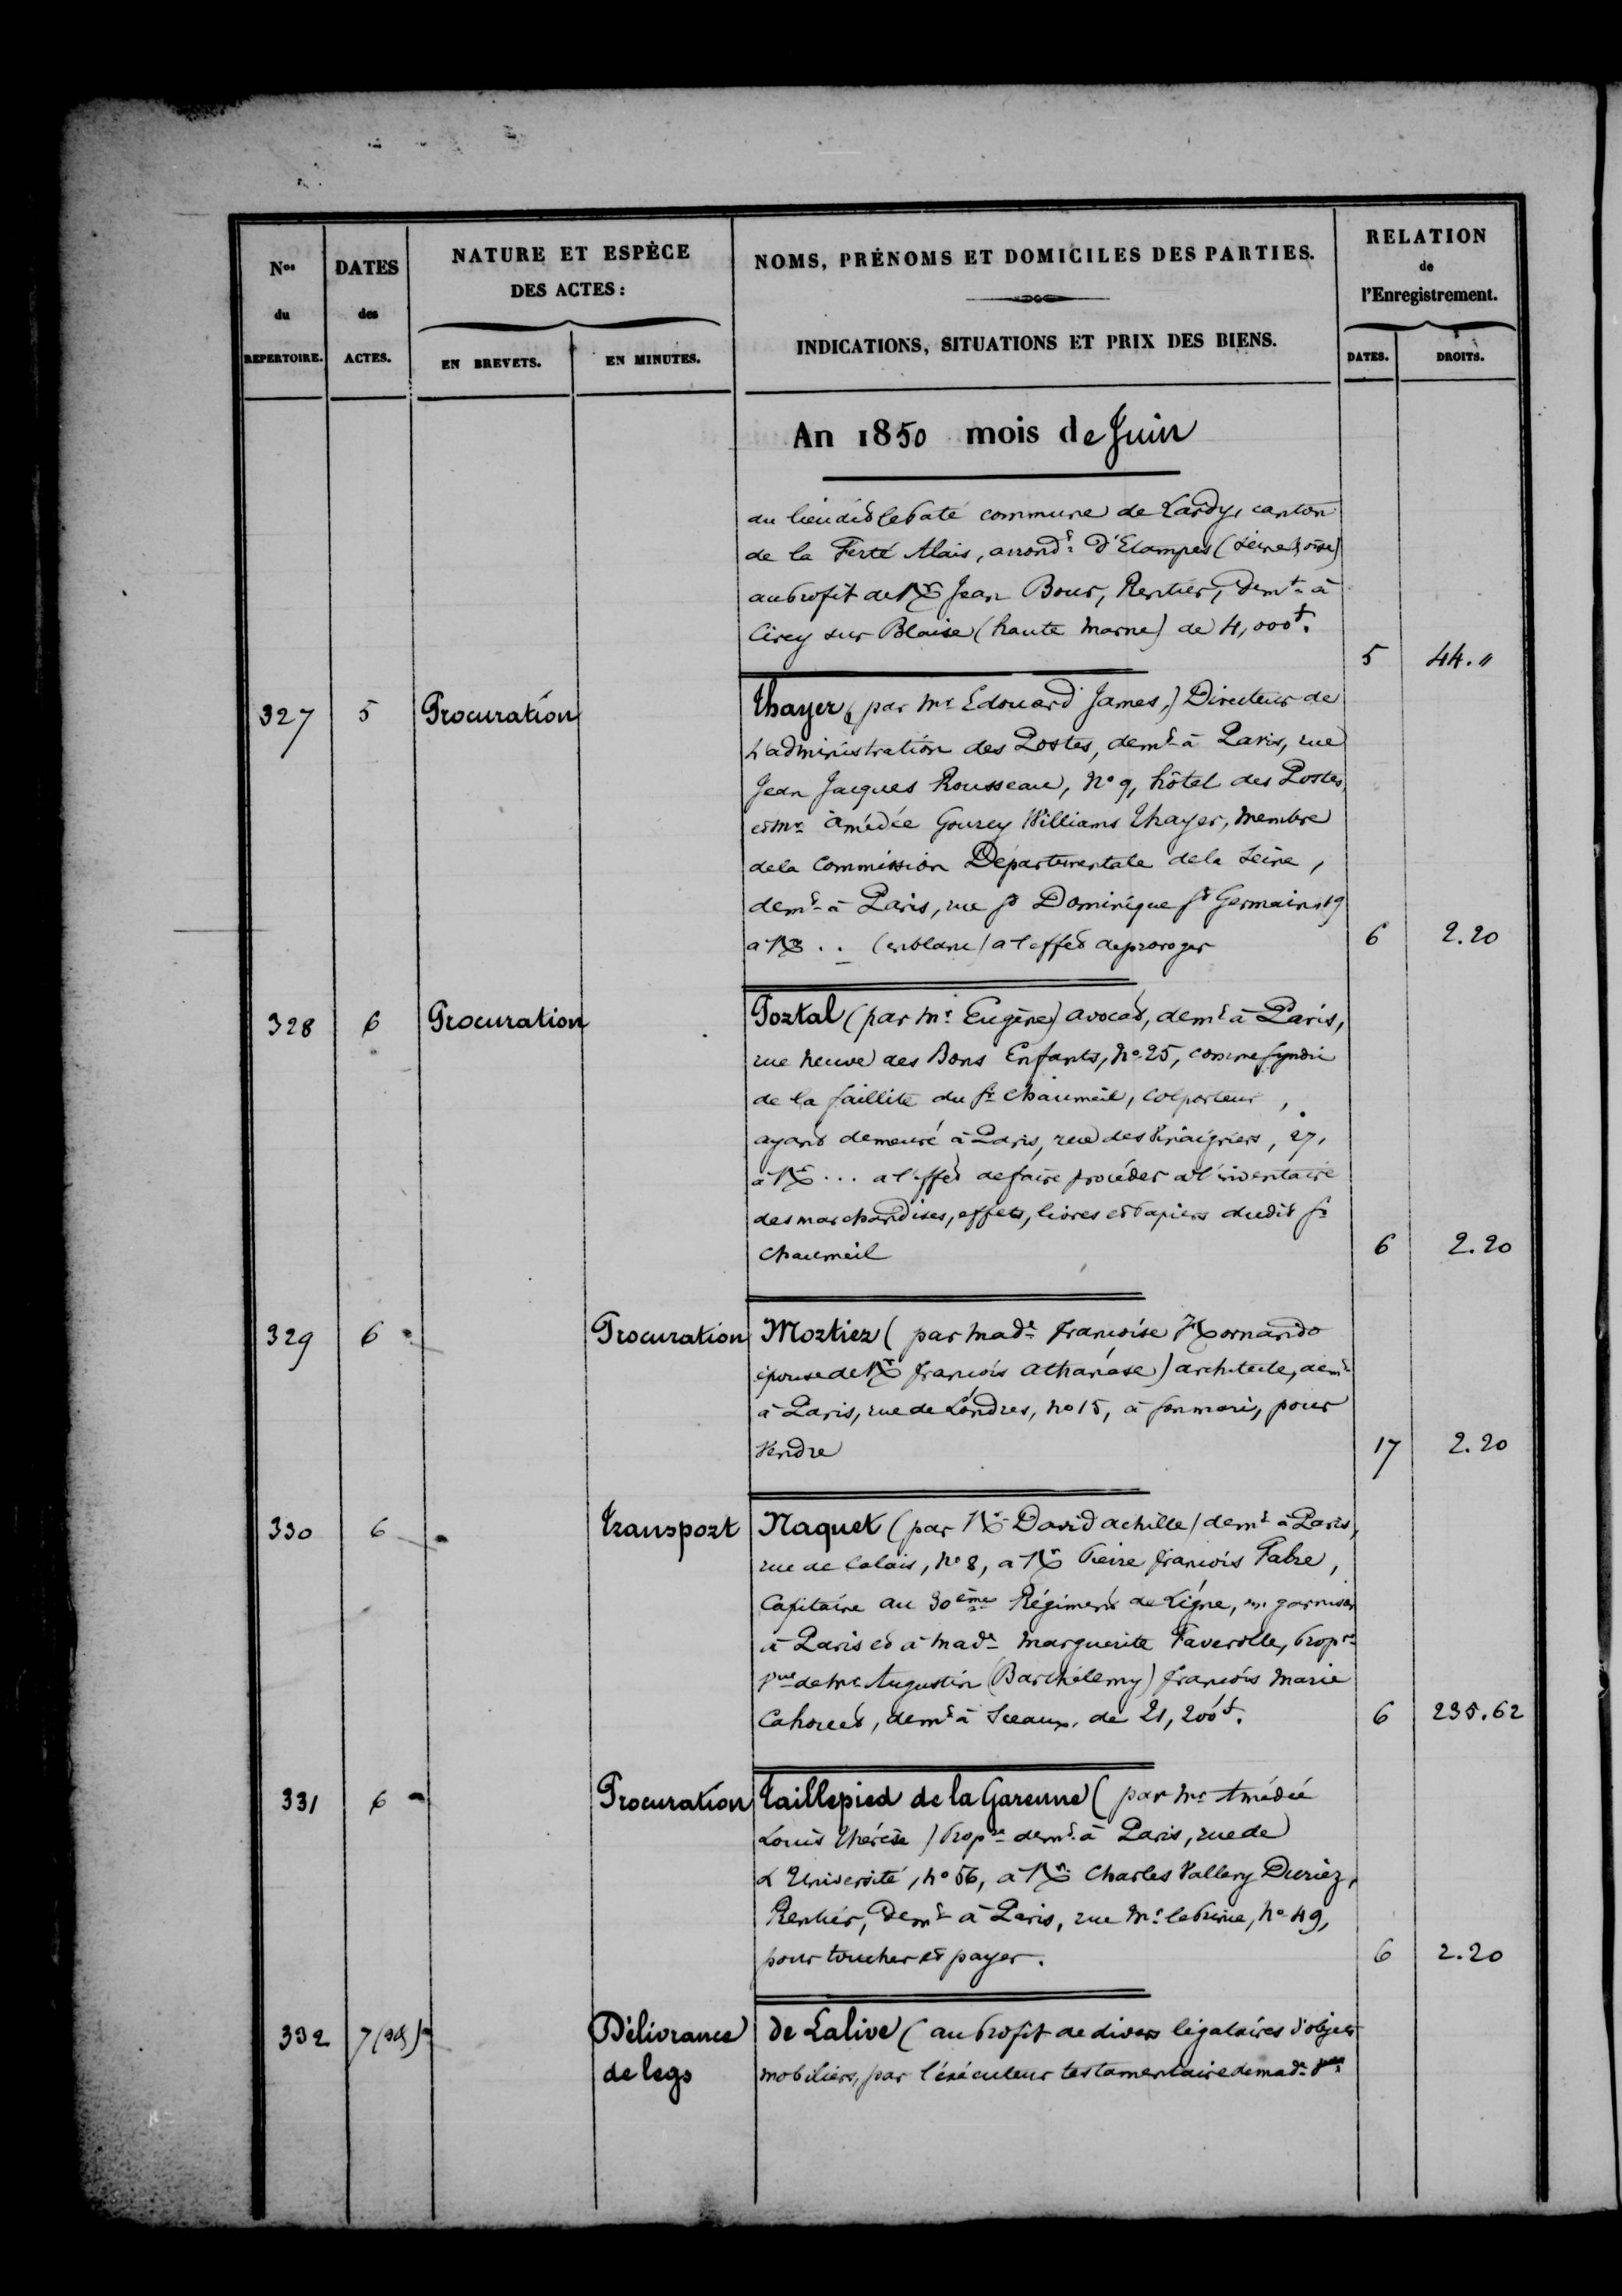 Nos
du
REPERTOIRE.
DATES
des
ACTES.
NATURE ET ESPÈCE
DES ACTES :
EN BREVETS.
EN MINUTES.
NOMS, PRÉNOMS ET DOMICILES DES PARTIES.
INDICATIONS, SITUATIONS ET PRIX DES BIENS.
RELATION
de
l'Enregistrement.
DATES.
DROITS.
An 1850 mois de Juin
au lieudit commune de Lardy, canton
de la Ferté Alais, arrondt d'Etampes (Seine & oise)
au profit de Mr Jean Bour, Rentier, demt à
Cirey sur Blaise (haute Marne) de 4,000f.
5 44.〃
327 5 Procuration
Thayer (par Mr Edouard James,) Directeur de
L'administration des Postes, demt à Paris, rue
Jean Jacques Rousseau, No 9, hôtel des Postes,
et Mr Amédée Gourcy Williams Thayer, Membre
de la Commission Départementale de la Seine,
demt à Paris, rue St Dominique St Germain, 19
a Mr . . (en blanc) a l'effet de proroger 6 2.20
328 6 Procuration
Portal (par Mr Eugène) avocat, demt à Paris,
rue neuve des Bons Enfants, No 25, comme syndic
de la faillite du Sr Chaumeil, colporteur,
ayant demeuré à Paris, rue des Vinaigriers, 27,
à Mr ... a l'effet de faire procéder à l'inventaire
des marchandises, effets, livres et papiers dudit Sr
Chaumeil 6 2.20
329 6 Procuration
Mortier (par Made françoise
épouse de Mr françois Athanase) architecte, demt
à Paris, rue de Londres, No 15, à son mari, pour
Vendre 17 2.20
330 6 Transport
Naquet (par Mr David Achille) demt à Paris,
rue de Calais, No 8, a Mr Pierre françois Fabre,
Capitaine au 30ème Régiment de Ligne, en garnison
à Paris et à Made Marguerite Faverolle, propre
Vve de Mr Augustin (Barthélemy) françois Marie
Cahouet, demt à Sceaux, de 21,200f. 6 235.62
331 6 Procuration
Taillepied de la Garenne (par Mr Amédée
Louis Thérèse) propre demt à Paris, rue de
L'Université, No 56, a Mr Charles Vallery Duriez,
Rentier, demt à Paris, rue Mr le Prince, No 49,
pour toucher et payer. 6 2.20
332 7 Délivrance
de legs
de Lalive (au profit de divers légataires d'objets
mobiliers, par l'exécuteur testamentaire de made